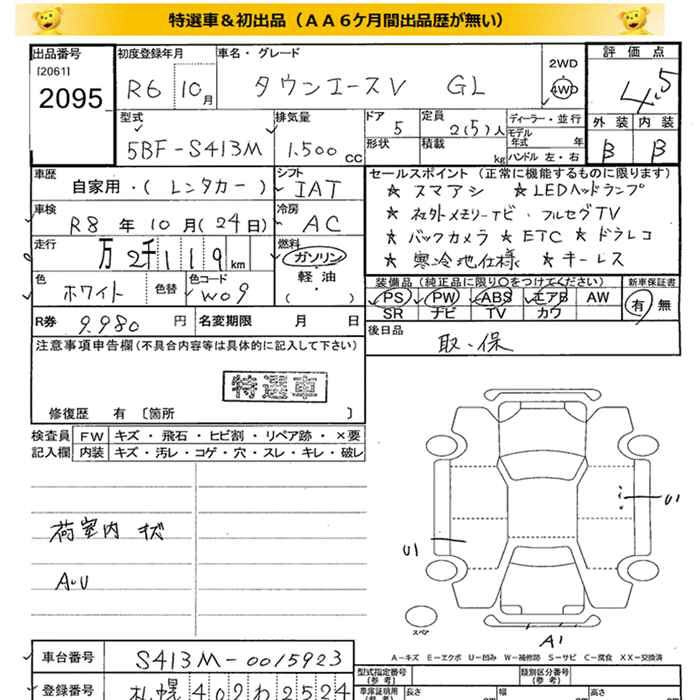 特選車＆初出品（ＡＡ６ケ月間出品歴が無い）
出品番号
[2061]
2095
初度登録年月
R6 10月
車名・グレード
タウンエースV GL
2WD
4WD
評価点
4.5
外装 内装
B B
型式
5BF-S413M
排気量
1.500 CC
ドア
5
形状
定員
2(5)人
積載
kg
ディーラー・並行
モデル年式 年
ハンドル 左・右
車歴
自家用・(レンタカー)
シフト
IAT
車検
R8年10月(24日)
冷房
AC
走行
万2千119km
燃料
ガソリン
軽・油
(・)
色
ホワイト
色替
色コード
W09
R券
9.980円
名変期限 月 日
セールスポイント（正常に機能するものに限ります）
★スマアシ ★LEDヘッドランプ
★社外メモリーナビ・フルセグTV
★バックカメラ ★ETC ★ドラレコ
★寒冷地仕様 ★キーレス
装備品（純正品に限り○をつけてください）
PS PW ABS エアB AW
SR ナビ TV カワ
新車保証書
有 無
後日品
取・保
注意事項申告欄（不具合内容等は具体的に記入して下さい）
特選車
修復歴 有〔箇所 〕
検査員記入欄
FW キズ・飛石・ヒビ割・リペア跡・×要
内装 キズ・汚レ・コゲ・穴・スレ・キレ・破レ
荷室内 キズ
A.U
U1
U1
スペア
A1
A－キズ E－エクボ U－凹み W－補修跡 S－サビ C－腐食 XX－交換済
車台番号
S413M-0015923
型式指定番号
(参考)
類別区分番号
(参考)
登録番号
札幌402わ2524
車庫証明用
長さ
幅
高さ